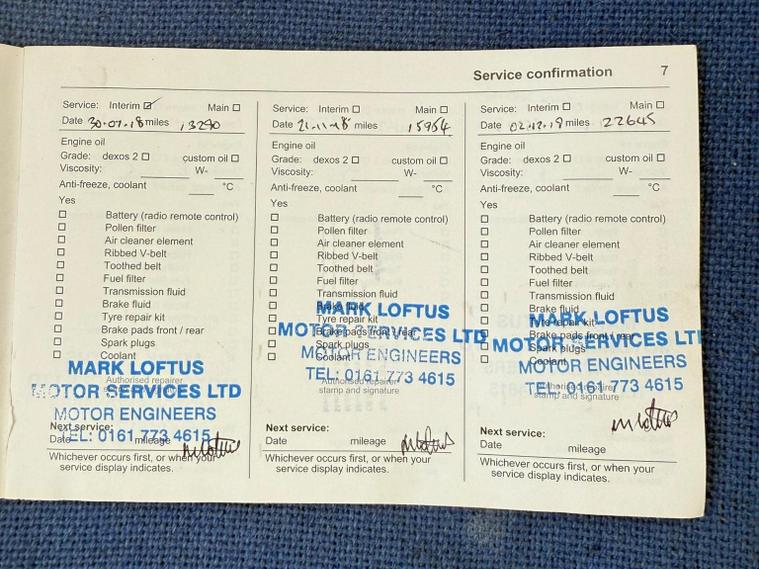 Service confirmation 7
Service: Interim Main
Date 30-07-18 miles 13290
Engine oil
Grade: dexos 2 custom oil
Viscosity: W-
Anti-freeze, coolant °C
Yes
Battery (radio remote control)
Pollen filter
Air cleaner element
Ribbed V-belt
Toothed belt
Fuel filter
Transmission fluid
Brake fluid
Tyre repair kit
Brake pads front / rear
Spark plugs
Coolant
MARK LOFTUS
Authorised repairer
stamp and signature
MOTOR SERVICES LTD
MOTOR ENGINEERS
TEL: 0161 773 4615
Next service:
Date mileage
Whichever occurs first, or when your
service display indicates.
Service: Interim Main
Date 21-11-18 miles 15954
Engine oil
Grade: dexos 2 custom oil
Viscosity: W-
Anti-freeze, coolant °C
Yes
Battery (radio remote control)
Pollen filter
Air cleaner element
Ribbed V-belt
Toothed belt
Fuel filter
Transmission fluid
Brake fluid
MARK LOFTUS
Tyre repair kit
Brake pads front / rear
MOTOR SERVICES LTD
Spark plugs
Coolant
MOTOR ENGINEERS
TEL: 0161 773 4615
Authorised repairer
stamp and signature
Next service:
Date mileage
Whichever occurs first, or when your
service display indicates.
Service: Interim Main
Date 02-12-19 miles 22645
Engine oil
Grade: dexos 2 custom oil
Viscosity: W-
Anti-freeze, coolant °C
Yes
Battery (radio remote control)
Pollen filter
Air cleaner element
Ribbed V-belt
Toothed belt
Fuel filter
Transmission fluid
Brake fluid
MARK LOFTUS
Tyre repair kit
Brake pads front / rear
MOTOR SERVICES LT
Spark plugs
Coolant
MOTOR ENGINEERS
TEL: 0161 773 4615
Authorised repairer
stamp and signature
Next service:
Date mileage
Whichever occurs first, or when your
service display indicates.